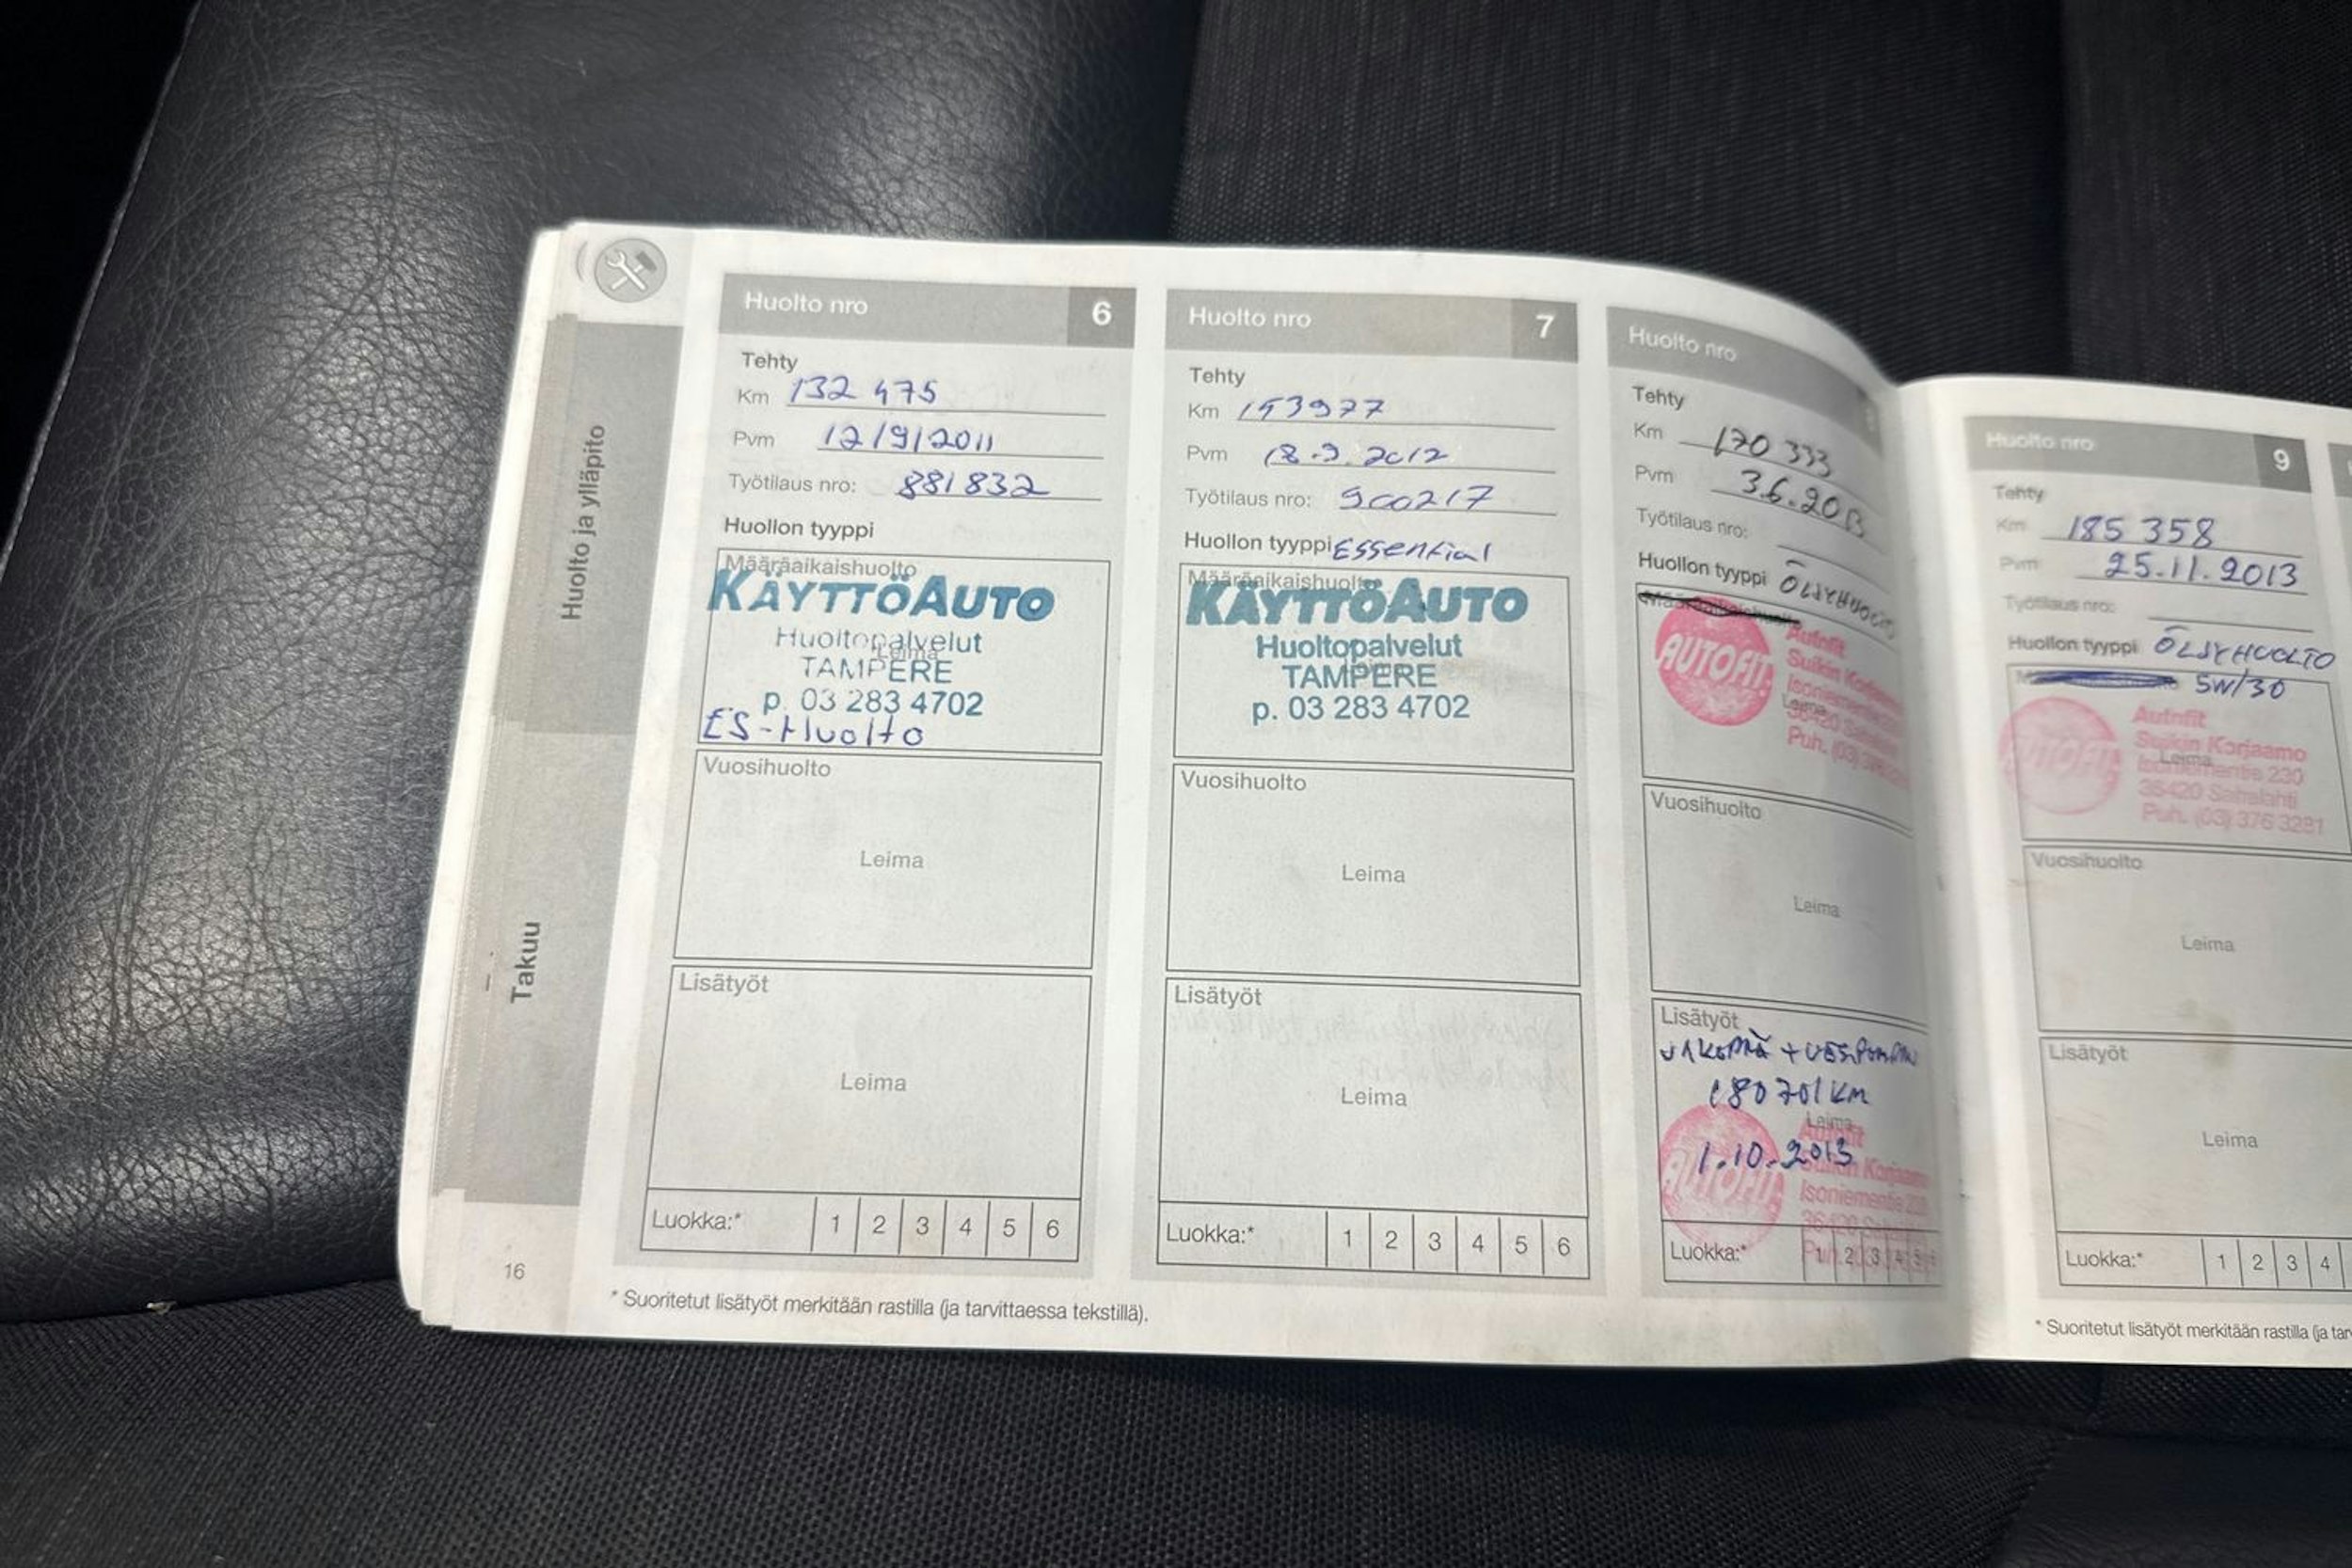 Huolto ja ylläpito
Takuu
16
Huolto nro 6
Tehty
Km 132 475
Pvm 12/9/2011
Työtilaus nro: 881832
Huollon tyyppi
Määräaikaishuolto
KÄYTTÖAUTO
Huoltopalvelut
Leima
TAMPERE
p. 03 283 4702
ES-Huolto
Vuosihuolto
Leima
Lisätyöt
Leima
Luokka:* 1 2 3 4 5 6
* Suoritetut lisätyöt merkitään rastilla (ja tarvittaessa tekstillä).
Huolto nro 7
Tehty
Km 153977
Pvm 18.9.2012
Työtilaus nro: 900217
Huollon tyyppi Essential
Määräaikaishuolto
KÄYTTÖAUTO
Huoltopalvelut
TAMPERE
p. 03 283 4702
Vuosihuolto
Leima
Lisätyöt
Leima
Luokka:* 1 2 3 4 5 6
Huolto nro
Tehty
Km 170 333
Pvm 3.6.2013
Työtilaus nro:
Huollon tyyppi ÖLJYHUOLTO
AUTOFIT
Autofit
Suikin Korjaamo
Leima
Puh. (03)
Vuosihuolto
Leima
Lisätyöt
JAKOPÄÄ + VESIPUMPPU
180 701 KM
Leima
1.10.2013
AUTOFIT
Autofit
Suikin Korjaamo
Isoniementie
Luokka:* 1 2 3 4 5 6
Huolto nro 9
Tehty
Km 185 358
Pvm 25.11.2013
Työtilaus nro:
Huollon tyyppi ÖLJYHUOLTO
5W/30
AUTOFIT
Autofit
Suikin Korjaamo
Leima
Isoniementie 230
36420 Sahalahti
Puh. (03) 376 3281
Vuosihuolto
Leima
Lisätyöt
Leima
Luokka:* 1 2 3 4
* Suoritetut lisätyöt merkitään rastilla (ja tar